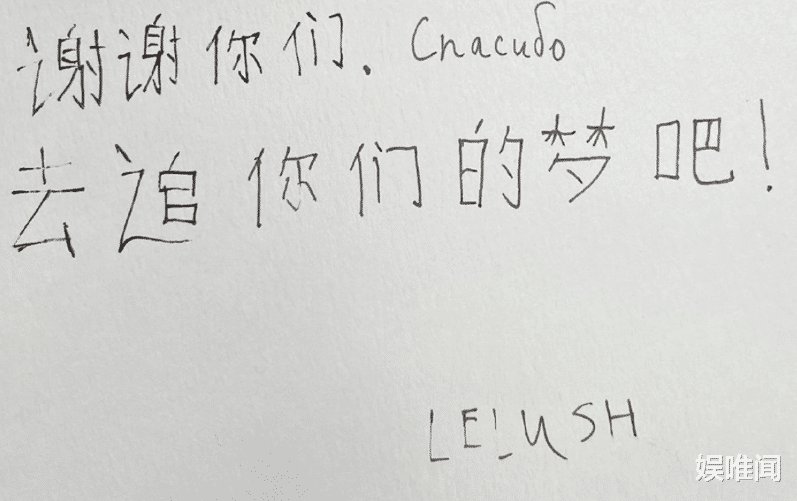 谢谢你们. Спасибо
去追你们的梦吧!
LELUSH
娱唯闻